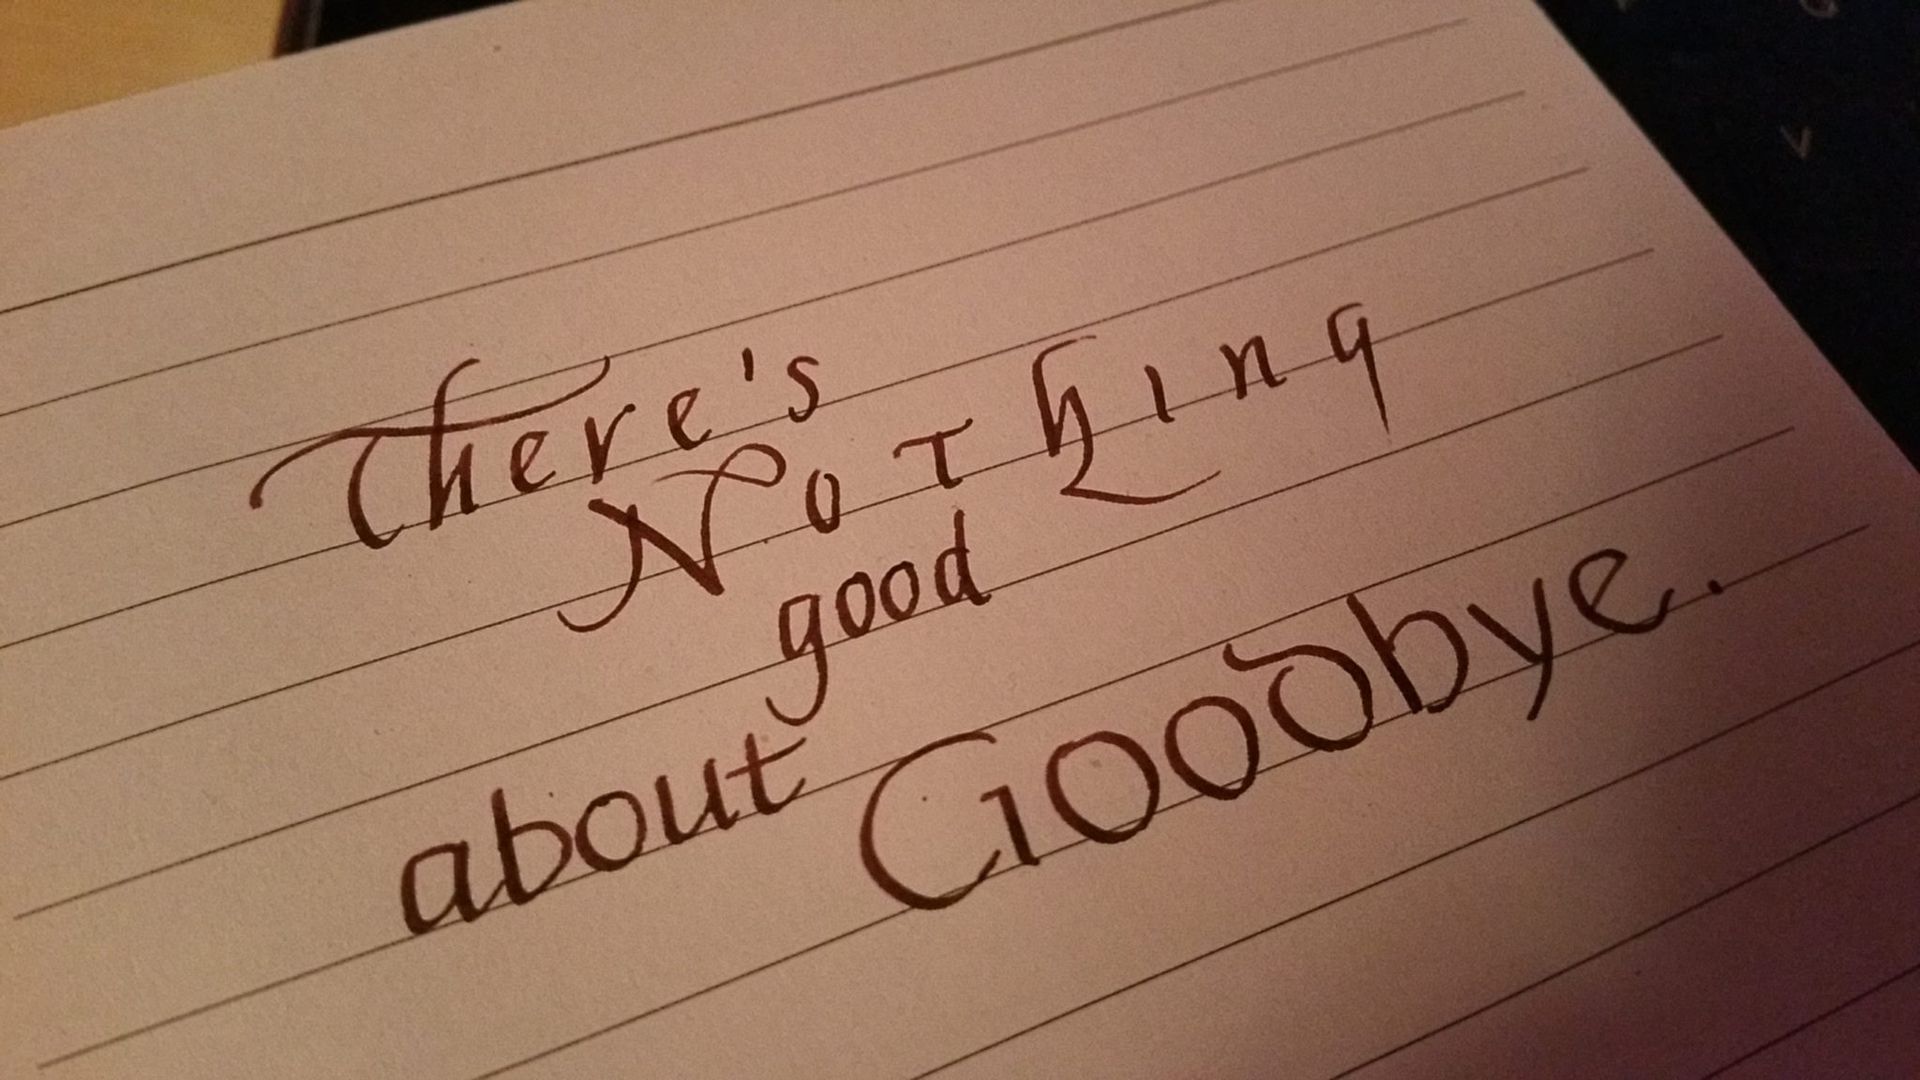 There's
Nothing
good
about Goodbye.